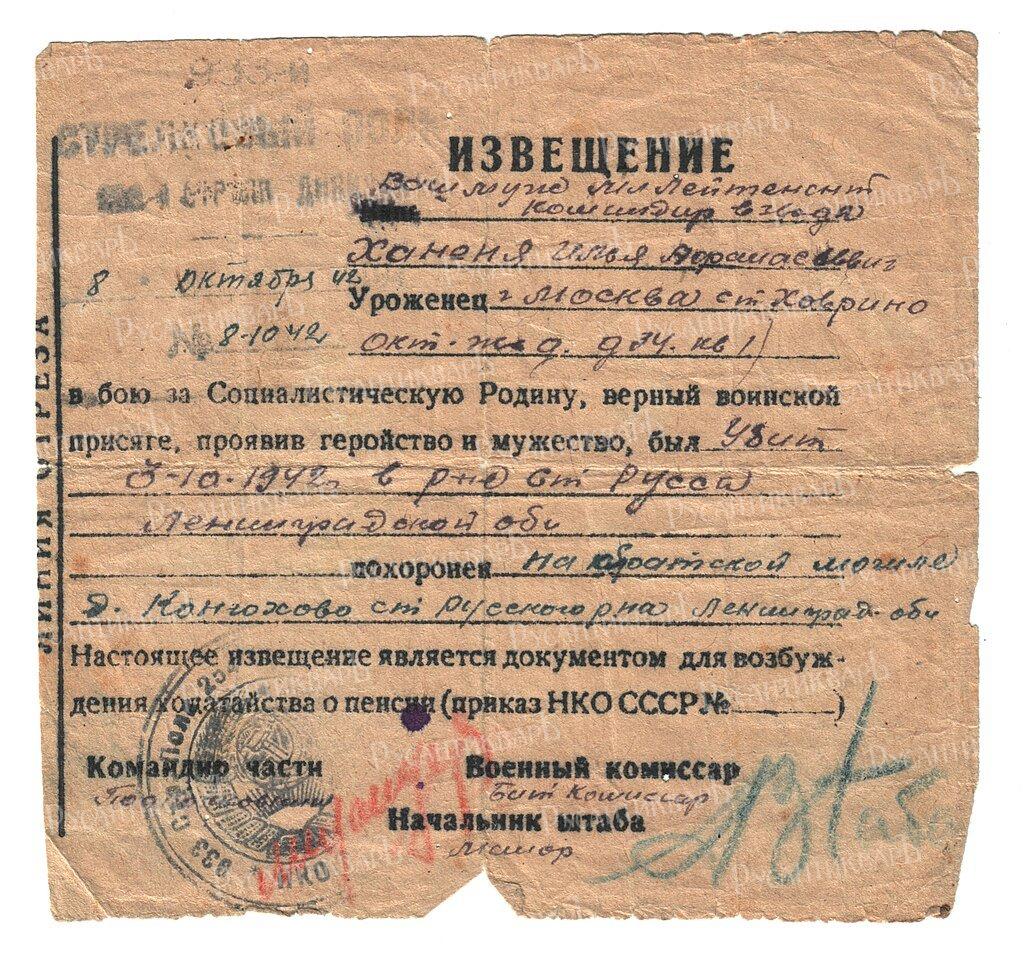 933-й
СТРЕЛКОВЫЙ ПОЛК
ИЗВЕЩЕНИЕ
Ваш муж мл лейтенант
командир взвода
Ханеня Илья Афанасьевич
8 октября 42
Уроженец г Москва ст Ховрино
№ 8-10 42
окт. ж д. д 34. кв 1
в бою за Социалистическую Родину, верный воинской
присяге, проявив геройство и мужество, был Убит
3-10-1942г в р-не Ст Русса
Ленинградской обл
похоронен на братской могиле
д. Ст Русского р-на Ленинград. обл
Настоящее извещение является документом для возбуж-
дения ходатайства о пенсии (приказ НКО СССР № )
Командир части
Военный комиссар
Подполковник
Бат Комиссар
Начальник штаба
Майор
ЛИНИЯ ОТРЕЗА
933 НКО
РУСАНТИКВАРЪ